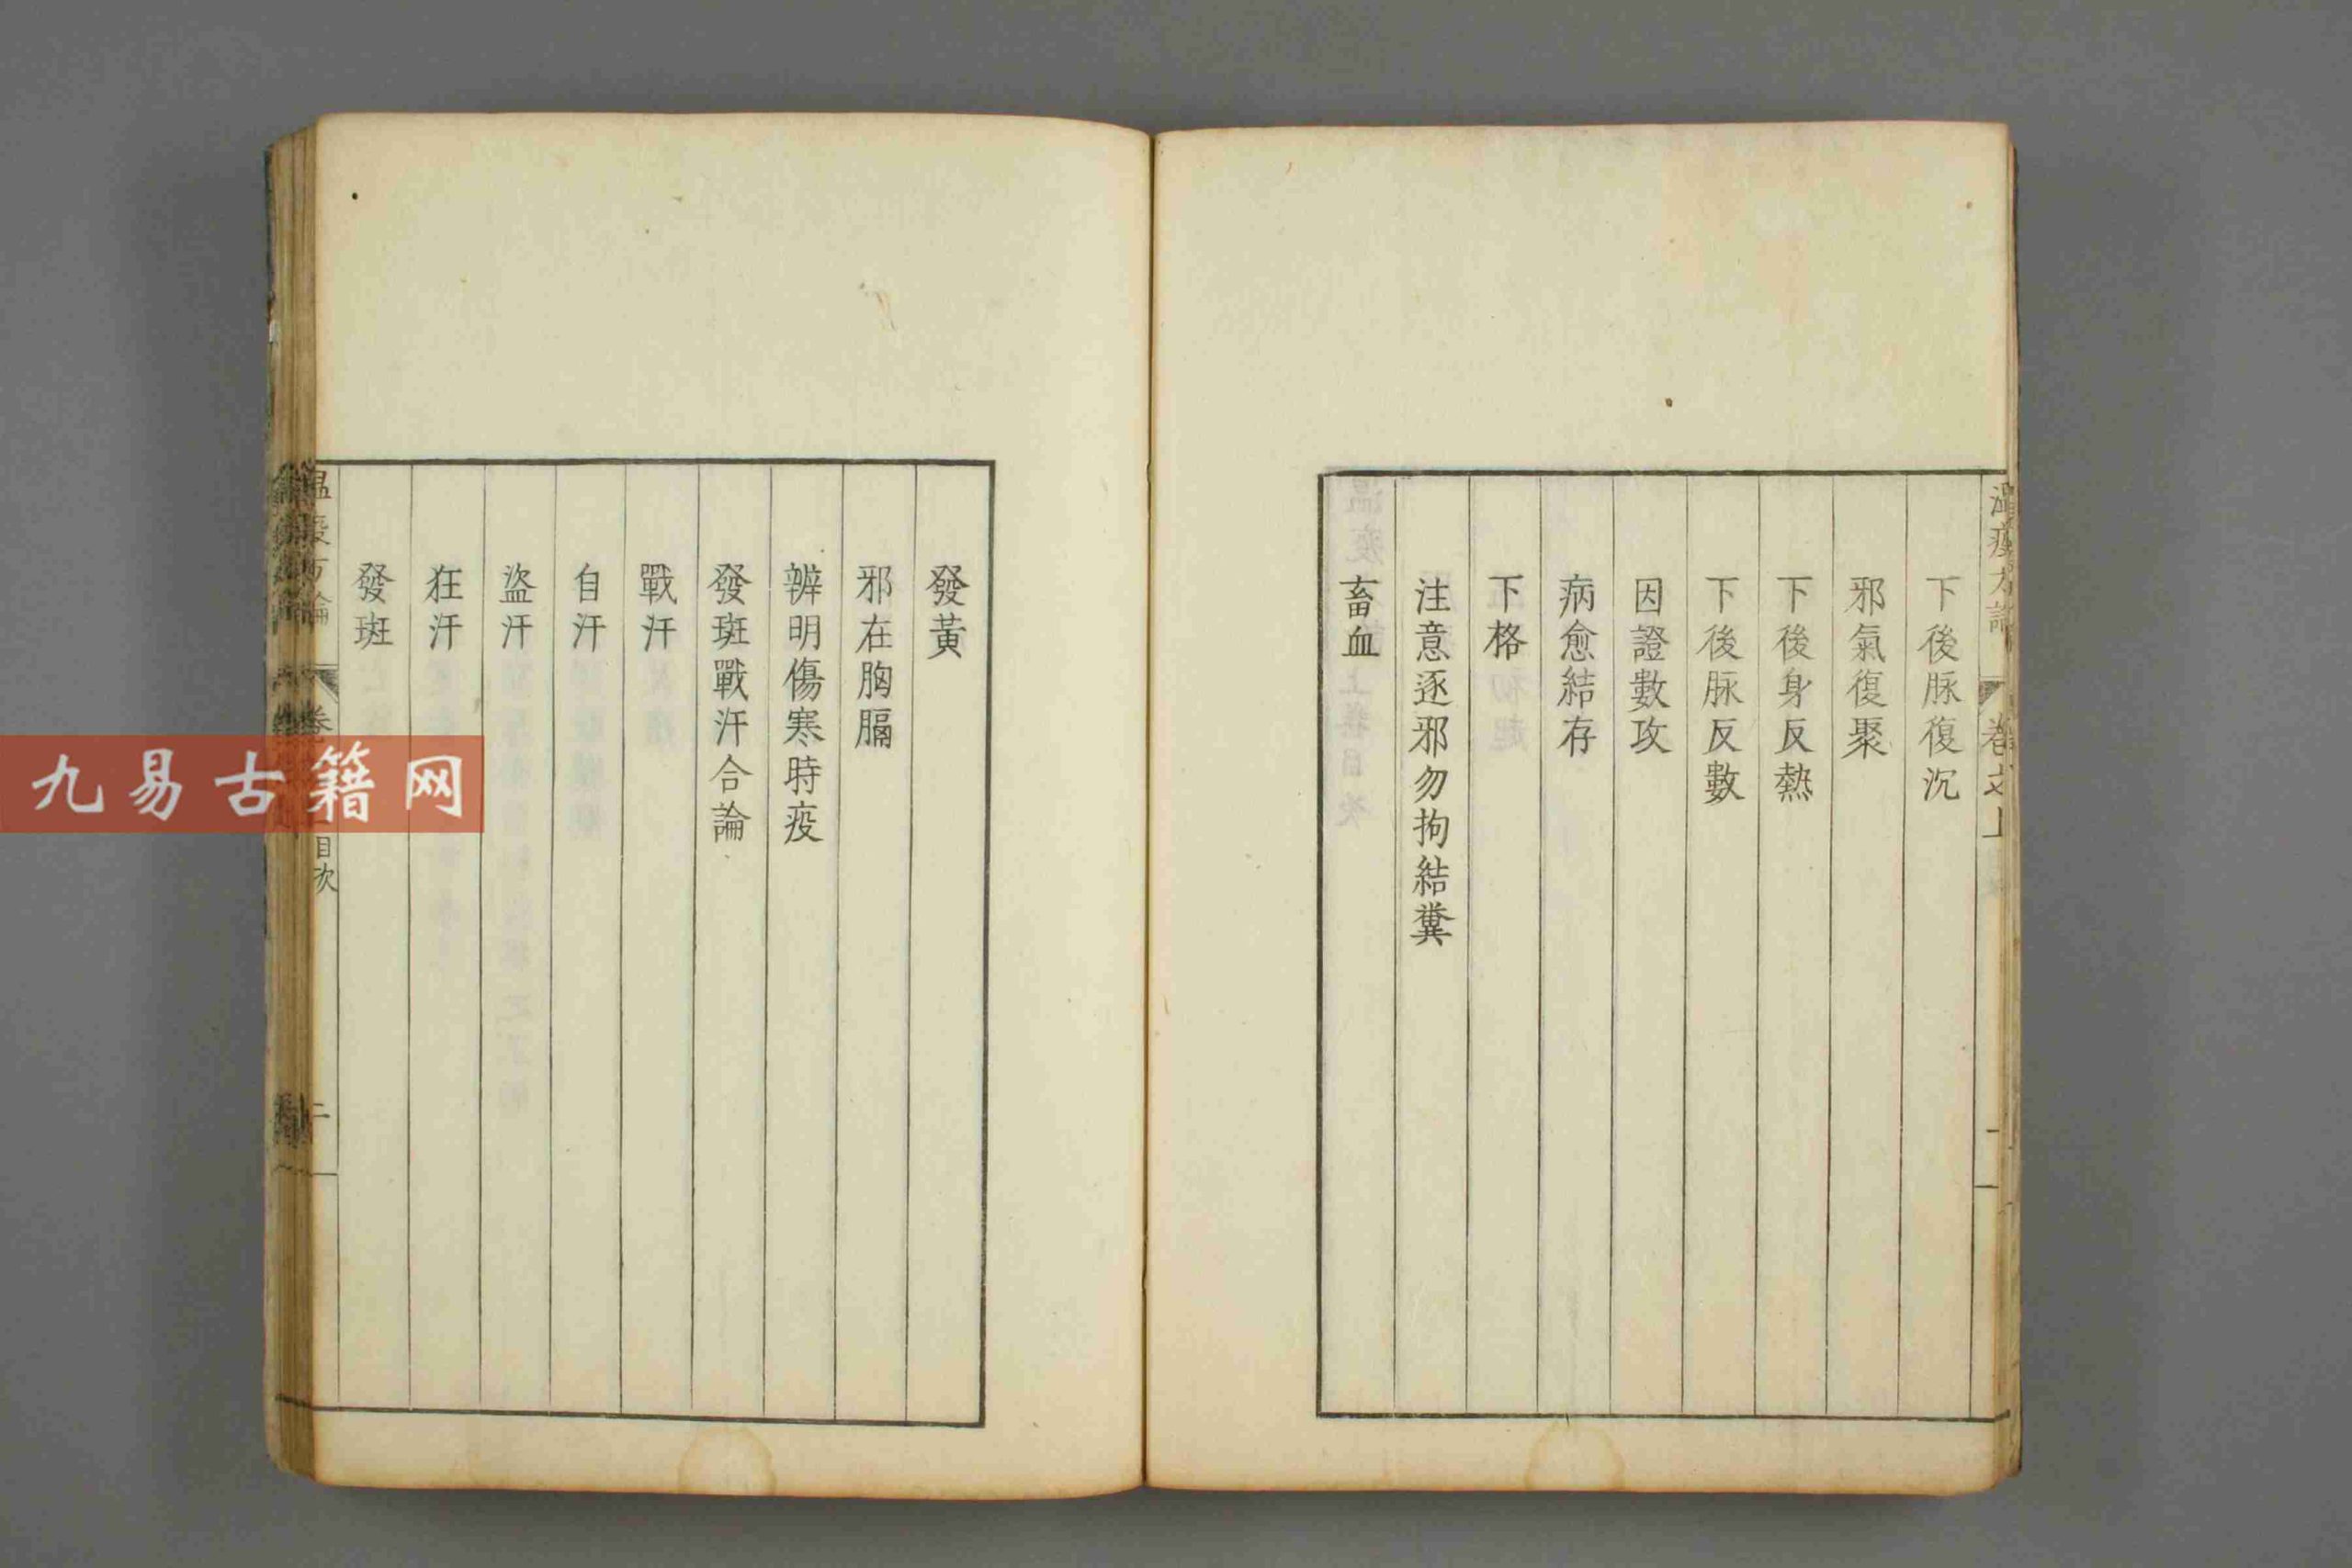 下後脉復沉
邪氣復聚
下後身反熱
下後脉反數
因證數攻
病愈結存
下格
注意逐邪勿拘結糞
畜血
發黃
邪在胸膈
辨明傷寒時疫
發斑戰汗合論
戰汗
自汗
盜汗
狂汗
發斑
目次
二
九易古籍网